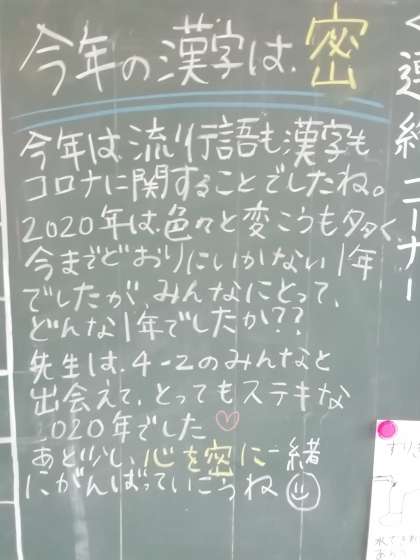 今年の漢字は、密
今年は流行語も漢字も
コロナに関することでしたね。
2020年は色々と変こうも多く
今までどおりにいかない1年
でしたが、みんなにとって、
どんな1年でしたか??
先生は、4-2のみんなと
出会えて、とってもステキな
2020年でした♡
あと少し、心を密に一緒
にがんばっていこうね☺
連絡コーナー